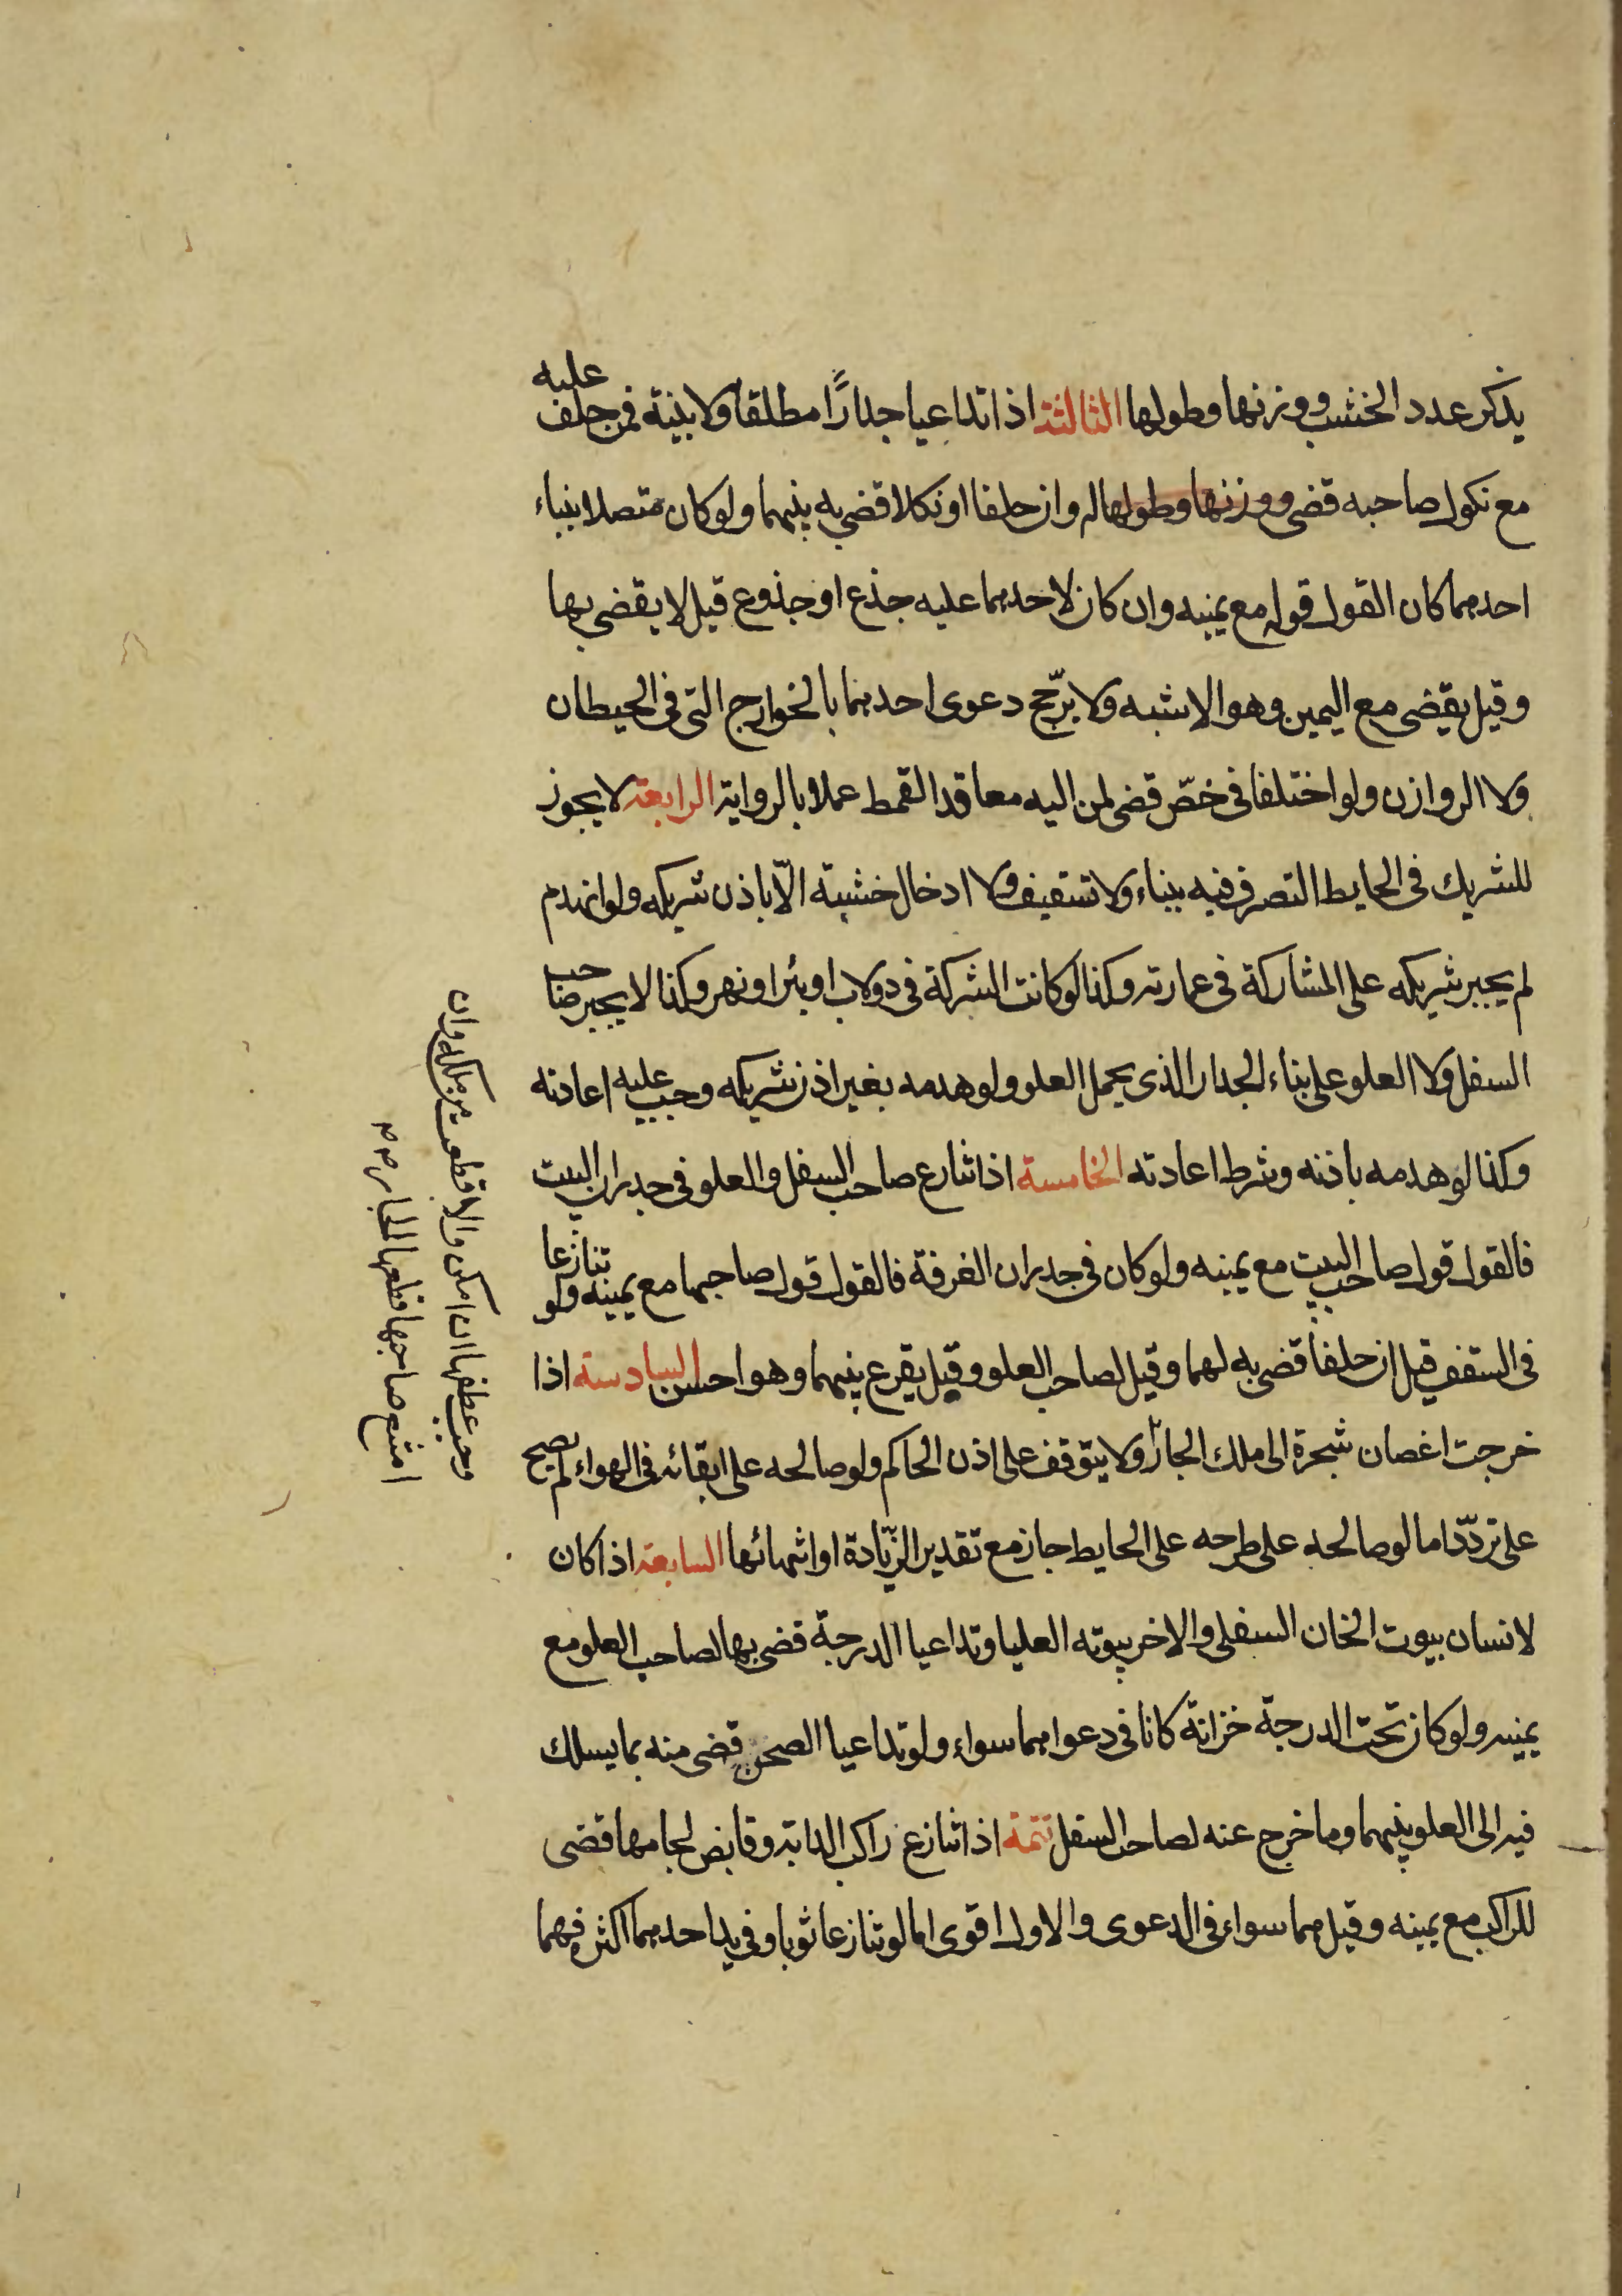 يذكر عدد الخشب ووزنها وطولها الثالثة اذا تداعيا جدارًا مطلقا ولا بينة فمن حلف عليه
مع نكول صاحبه قضى ووزنها وطولها له وان حلفا او نكلا قضى به بينهما ولو كان متصلا ببناء
احدهما كان القول قوله مع يمينه وان كان لاحدهما عليه جذع او جذوع قيل لا يقضى بها
وقيل يقضى مع اليمين وهو الاشبه ولا يرجّح دعوى احدهما بالخوارج التى فى الحيطان
ولا الروازن ولو اختلفا فى خصّ قضى لمن اليه معاقد القمط عملا بالرواية الرابعة لا يجوز
للشريك فى الحايط التصرف فيه ببناء ولا تسقيف ولا ادخال خشبة الّا باذن شريكه ولو انهدم
لم يجبر شريكه على المشاركة فى عمارته وكذا لو كانت الشركة فى دولاب او بئر او نهر وكذا لا يجبر صاحب
السفل ولا العلو على بناء الجدار الذى يحمل العلو ولو هدمه بغير اذن شريكه وجب عليه اعادته
وكذا لو هدمه باذنه وشرط اعادته الخامسة اذا تنازع صاحب السفل والعلو فى جدران البيت
فالقول قول صاحب البيت مع يمينه ولو كان فى جدران الغرفة فالقول قول صاحبها مع يمينه ولو تنازعا
فى السقف قيل ان حلفا قضى به لهما وقيل لصاحب العلو وقيل يقرع بينهما وهو احسن السادسة اذا
خرجت اغصان شجرة الى ملك الجار ولا يتوقف على اذن الحاكم ولو صالحه على ابقائه فى الهواء لم يصح
على تردّد اما لو صالحه على طرحه على الحايط جاز مع تقدير الزّيادة او انتهائها السابعة اذا كان
لانسان بيوت الخان السفلى والاخر بيوته العليا وتداعيا الدرجة قضى بها لصاحب العلو مع
يمينه ولو كان تحت الدرجة خزانة كانا فى دعواهما سواء ولو تداعيا الصحن قضى منه بما يسلك
فيه الى العلو بينهما وما خرج عنه لصاحب السفل تتمة اذا تنازع راكب الدابة وقابض لجامها قضى
للراكب مع يمينه وقيل هما سواء فى الدعوى والاول اقوى اما لو تنازعا ثوبا وفى يد احدهما اكثر فهما
وجب عطفها ان امكن والا قطعت من ملكه وان
امتنع صاحبها قطعها الجار